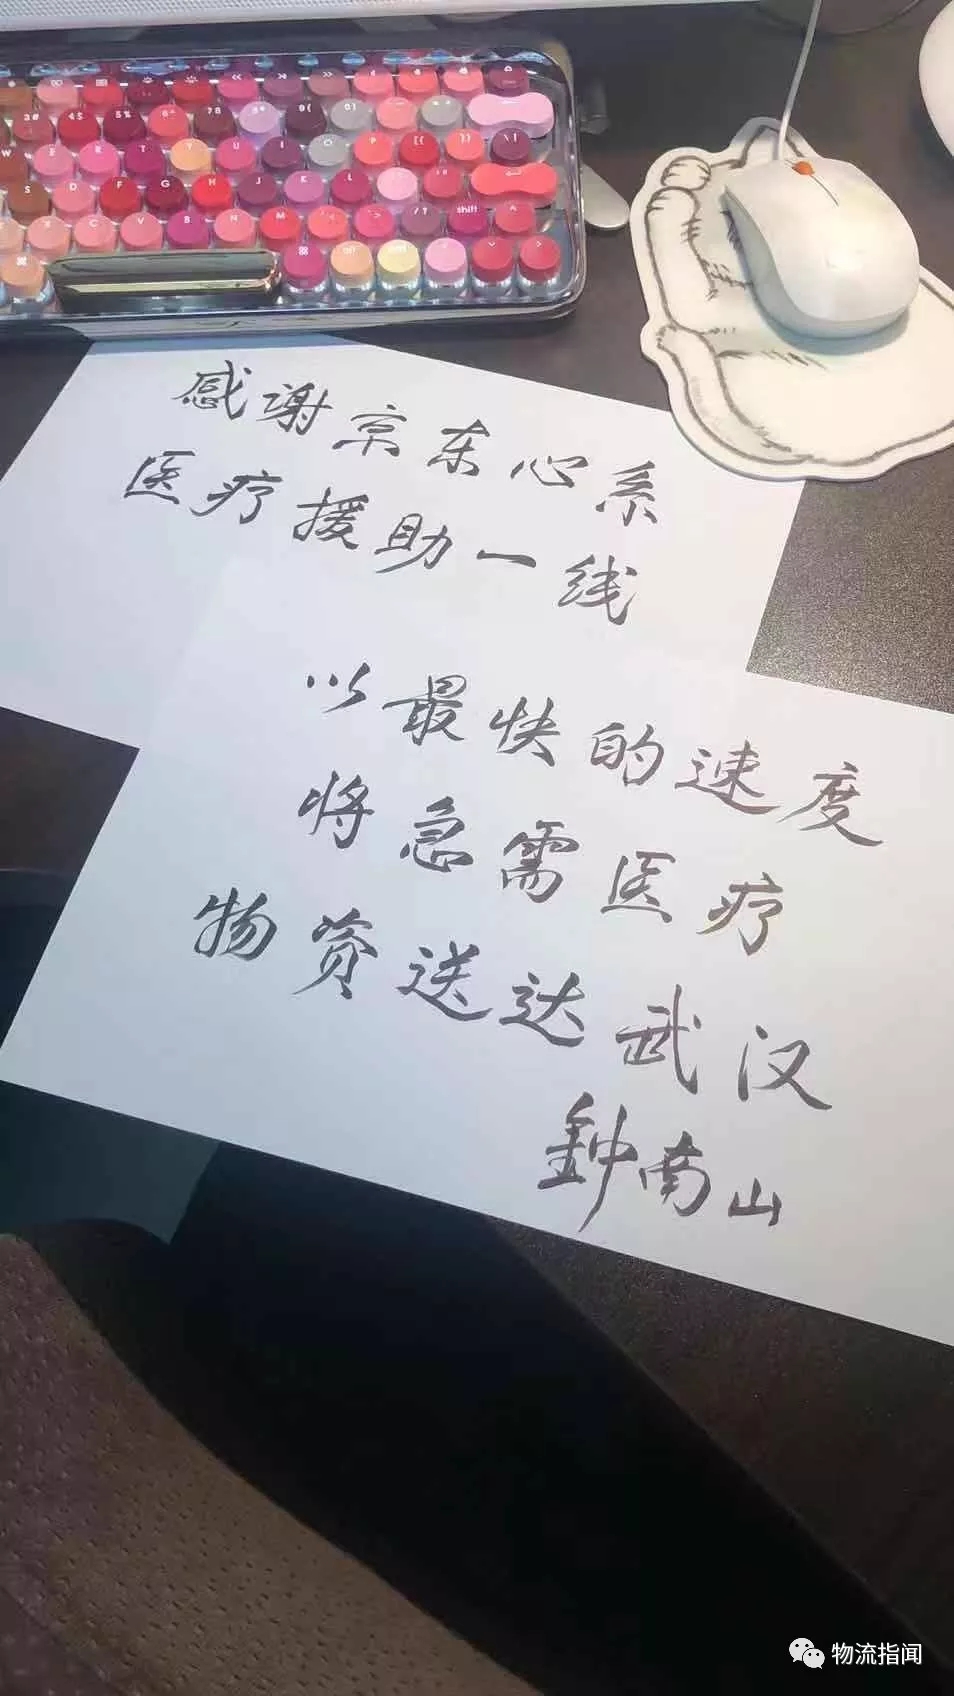 感谢京东心系
医疗援助一线
以最快的速度
将急需医疗
物资送达武汉
鈡南山
物流指闻